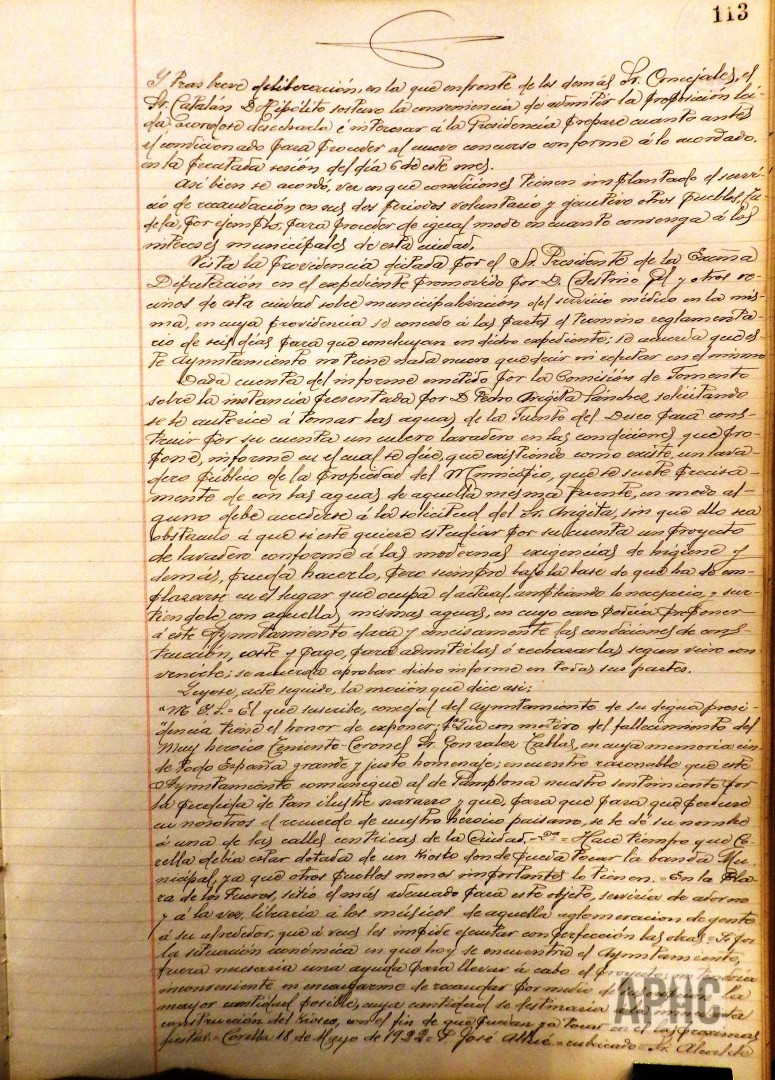 113
Y tras breve deliberación, en la que enfrente de los demás Sr. Concejales, el
Sr. Catalán D. Hipólito sostuvo la conveniencia de admitir la proposición leí-
da, acordose desecharla é interesar á la Presidencia prepare cuanto antes
el condicionado para proceder al nuevo concurso conforme á lo acordado
en la precitada sesión del día 6 de este mes.
Asi bien se acordó, ver en que condiciones tienen implantado el servi-
cio de recaudación en sus dos periodos voluntario y ejecutivo otros pueblos, Tu-
dela, por ejemplo, para proceder de igual modo en cuanto convenga á los
intereses municipales de esta ciudad.
Vista la providencia dictada por el Sr. Presidente de la Excma
Diputación en el expediente promovido por D. Celestino Gil y otros ve-
cinos de esta ciudad sobre municipalización del servicio médico en la mis-
ma, en cuya providencia se concede á las partes el termino reglamenta-
rio de seis dias para que concluyan en dicho expediente; se acuerda que es-
te Ayuntamiento no tiene nada nuevo que decir ni refutar en el mismo
Dada cuenta del informe emitido por la Comisión de Fomento
sobre la instancia presentada por D. Pedro Arigita Sánchez solicitando
se le autorice á tomar las aguas de la Fuente del Deseo para cons-
truir por su cuenta un nuevo lavadero en las condiciones que pro-
pone, informe en el cual se dice, que existiendo como existe, un lava-
dero público de la propiedad del Municipio, que se surte precisa-
mente de con las aguas de aquella misma fuente, en modo al-
guno debe accederse á la solicitud del Sr. Arigita, sin que ello sea
obstaculo á que si este quiere estudiar por su cuenta un proyecto
de lavadero conforme á las modernas exigencias de higiene y
demás, pueda hacerlo, pero siempre bajo la base de que ha de em-
plazarse en el lugar que ocupa el actual, ampliando lo necesario, y sur-
tiendole con aquellas mismas aguas, en cuyo caso podria proponer
á este Ayuntamiento clara y concisamente las condiciones de cons-
trucción, coste y pago, para admitirlas ó rechazarlas segun viere con-
venirle; se acuerda aprobar dicho informe en todas sus partes.
Leyose, acto seguido, la moción que dice asi:
"M. I. S. = El que suscribe, concejal del Ayuntamiento de su digna presi-
dencia tiene el honor de exponer: 1º Que con motivo del fallecimiento del
Muy heroico Teniente-Coronel Sr. Gonzalez Tablas, en cuya memoria rin-
de toda España grande y justo homenaje; encuentro razonable que este
Ayuntamiento comunique al de Pamplona nuestro sentimiento por
la perdida de tan ilustre navarro y que, para que para que perdure
en nosotros el recuerdo de nuestro heroico paisano, se le dé su nombre
á una de las calles centricas de la Ciudad. = 2º = Hace tiempo que Co-
rella debia estar dotada de un kiosko donde pueda tocar la banda Mu-
nicipal, ya que otros pueblos menos importantes lo tienen. = En la Pla-
za de los Fueros, sitio el más adecuado para este objeto, serviria de adorno
y á la vez, libraria á los músicos de aquella aglomeracion de gente
á su alrededor, que á veces les impide ejecutar con perfección las obras = Si por
la situación económica en que hoy se encuentra el Ayuntamiento,
fuera necesaria una ayuda para llevar á cabo el proyecto, no tendria
inconveniente en encargarme de recaudar por medio de suscripción la
mayor cantidad posible, cuya cantidad se destinaria á la
construcción del kiosco, con el fin de que puedan ya tocar en el las proximas
fiestas. = Corella 18 de Mayo de 1922 = José = rubricado = Sr. Alcalde
APHC